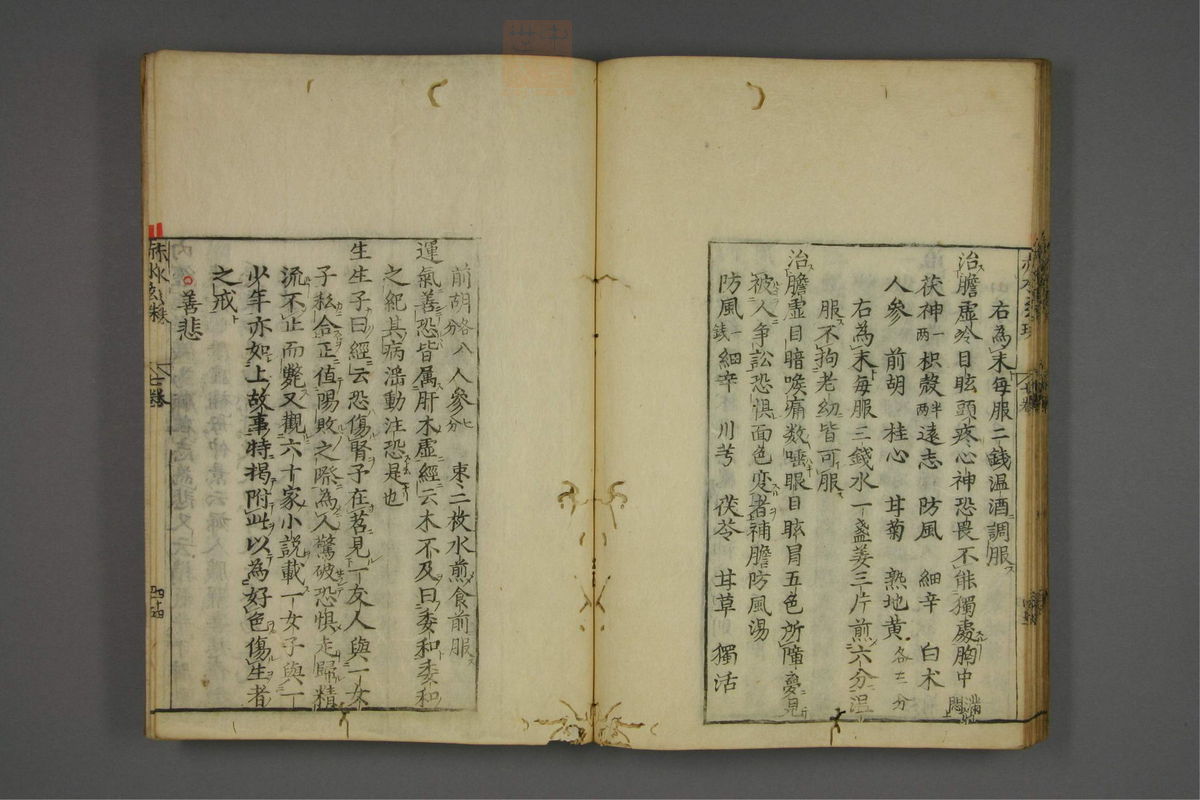 右為末毎服二錢温酒調服
治膽虚冷目眩頭疼心神恐畏不能獨處胸中滿悶
茯神一両 枳殻両半 遠志 防風 細辛 白术
人參 前胡 桂心 甘菊 熟地黄各 分
右為末毎服三錢水一盞姜三片煎六分温
服不拘老幼皆可服
治膽虚目暗喉痛数唾眼目眩冒五色所障夢見
被人争訟恐惧面色変者補膽防風湯
防風一錢 細辛 川芎 茯苓 甘草 獨活
前胡各八分 人參七分 束二枚水煎食前服
運氣善恐皆属肝木虚經云木不及曰委和委和
之紀其病揺動注恐是也
生生子曰經云恐傷腎予在苕見一友人與一女
子私合正值陽敗之際為人驚破恐惧走歸精
流不止而斃又觀六十家小説載一女子與一
少年亦如上故事特揭附此以為好色傷生者
之戒
善悲
赤水玄珠 七巻